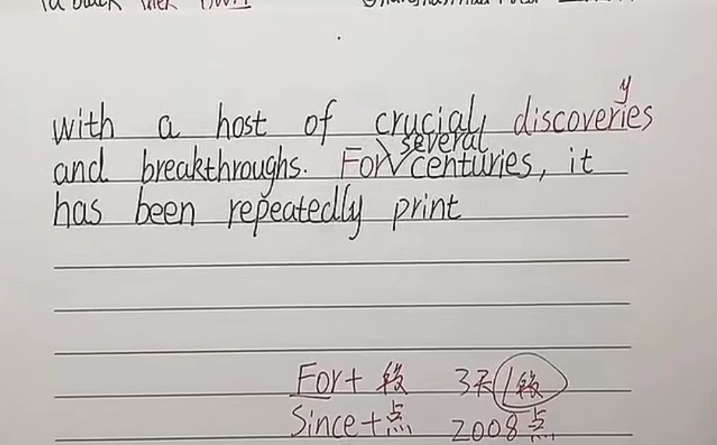 with a host of crucial discoveries y
and breakthroughs. For several centuries, it
has been repeatedly print
For+ 段 3天/段
Since+点 2008点